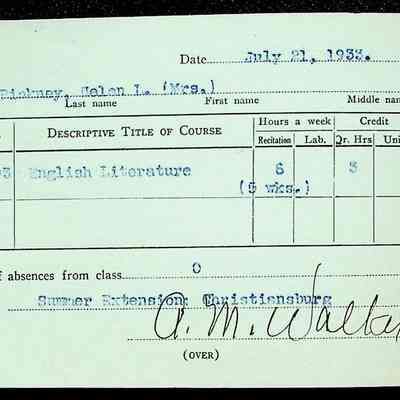 Date July 21, 1933.
Pickney, Helen L. (Mrs.)
Last name First name Middle nam
DESCRIPTIVE TITLE OF COURSE Hours a week Credit
Recitation Lab. Qr. Hrs Uni
3 English Literature 6 3
(6 wks.)
f absences from class 0
Summer Extension: Christiansburg
A. M. Walta
(OVER)